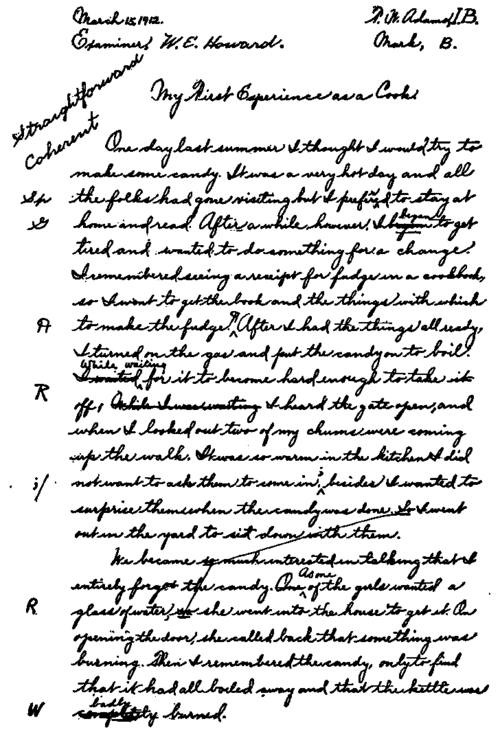 March 15, 1912. F. W. Adams, I B.
Examiner, W. E. Howard. Mark, B.
My First Experience as a Cook
Straightforward
Coherent
One day last summer I thought I would try to
make some candy. It was a very hot day and all
Sp the folks had gone visiting but I prefered to stay at
G home and read. After a while however, I began to get
tired and wanted to do something for a change.
I remembered seeing a receipt for fudge in a cookbook,
so I went to get the book and the things with which
A to make the fudge. ¶ After I had the things all ready,
I turned on the gas and put the candy on to boil.
While waiting
I waited for it to become hard enough to take it
R off, While I was waiting I heard the gate open, and
when I looked out two of my chums were coming
up the walk. It was so warm in the kitchen I did
;/ not want to ask them to come in ; besides I wanted to
surprise them when the candy was done. So I went
out in the yard to sit down with them.
We became so much interested in talking that I
entirely forgot the candy. One As one of the girls wanted a
R glass of water, so she went into the house to get it. On
opening the door, she called back that something was
burning. Then I remembered the candy, only to find
that it had all boiled away and that the kettle was
badly
W completely burned.